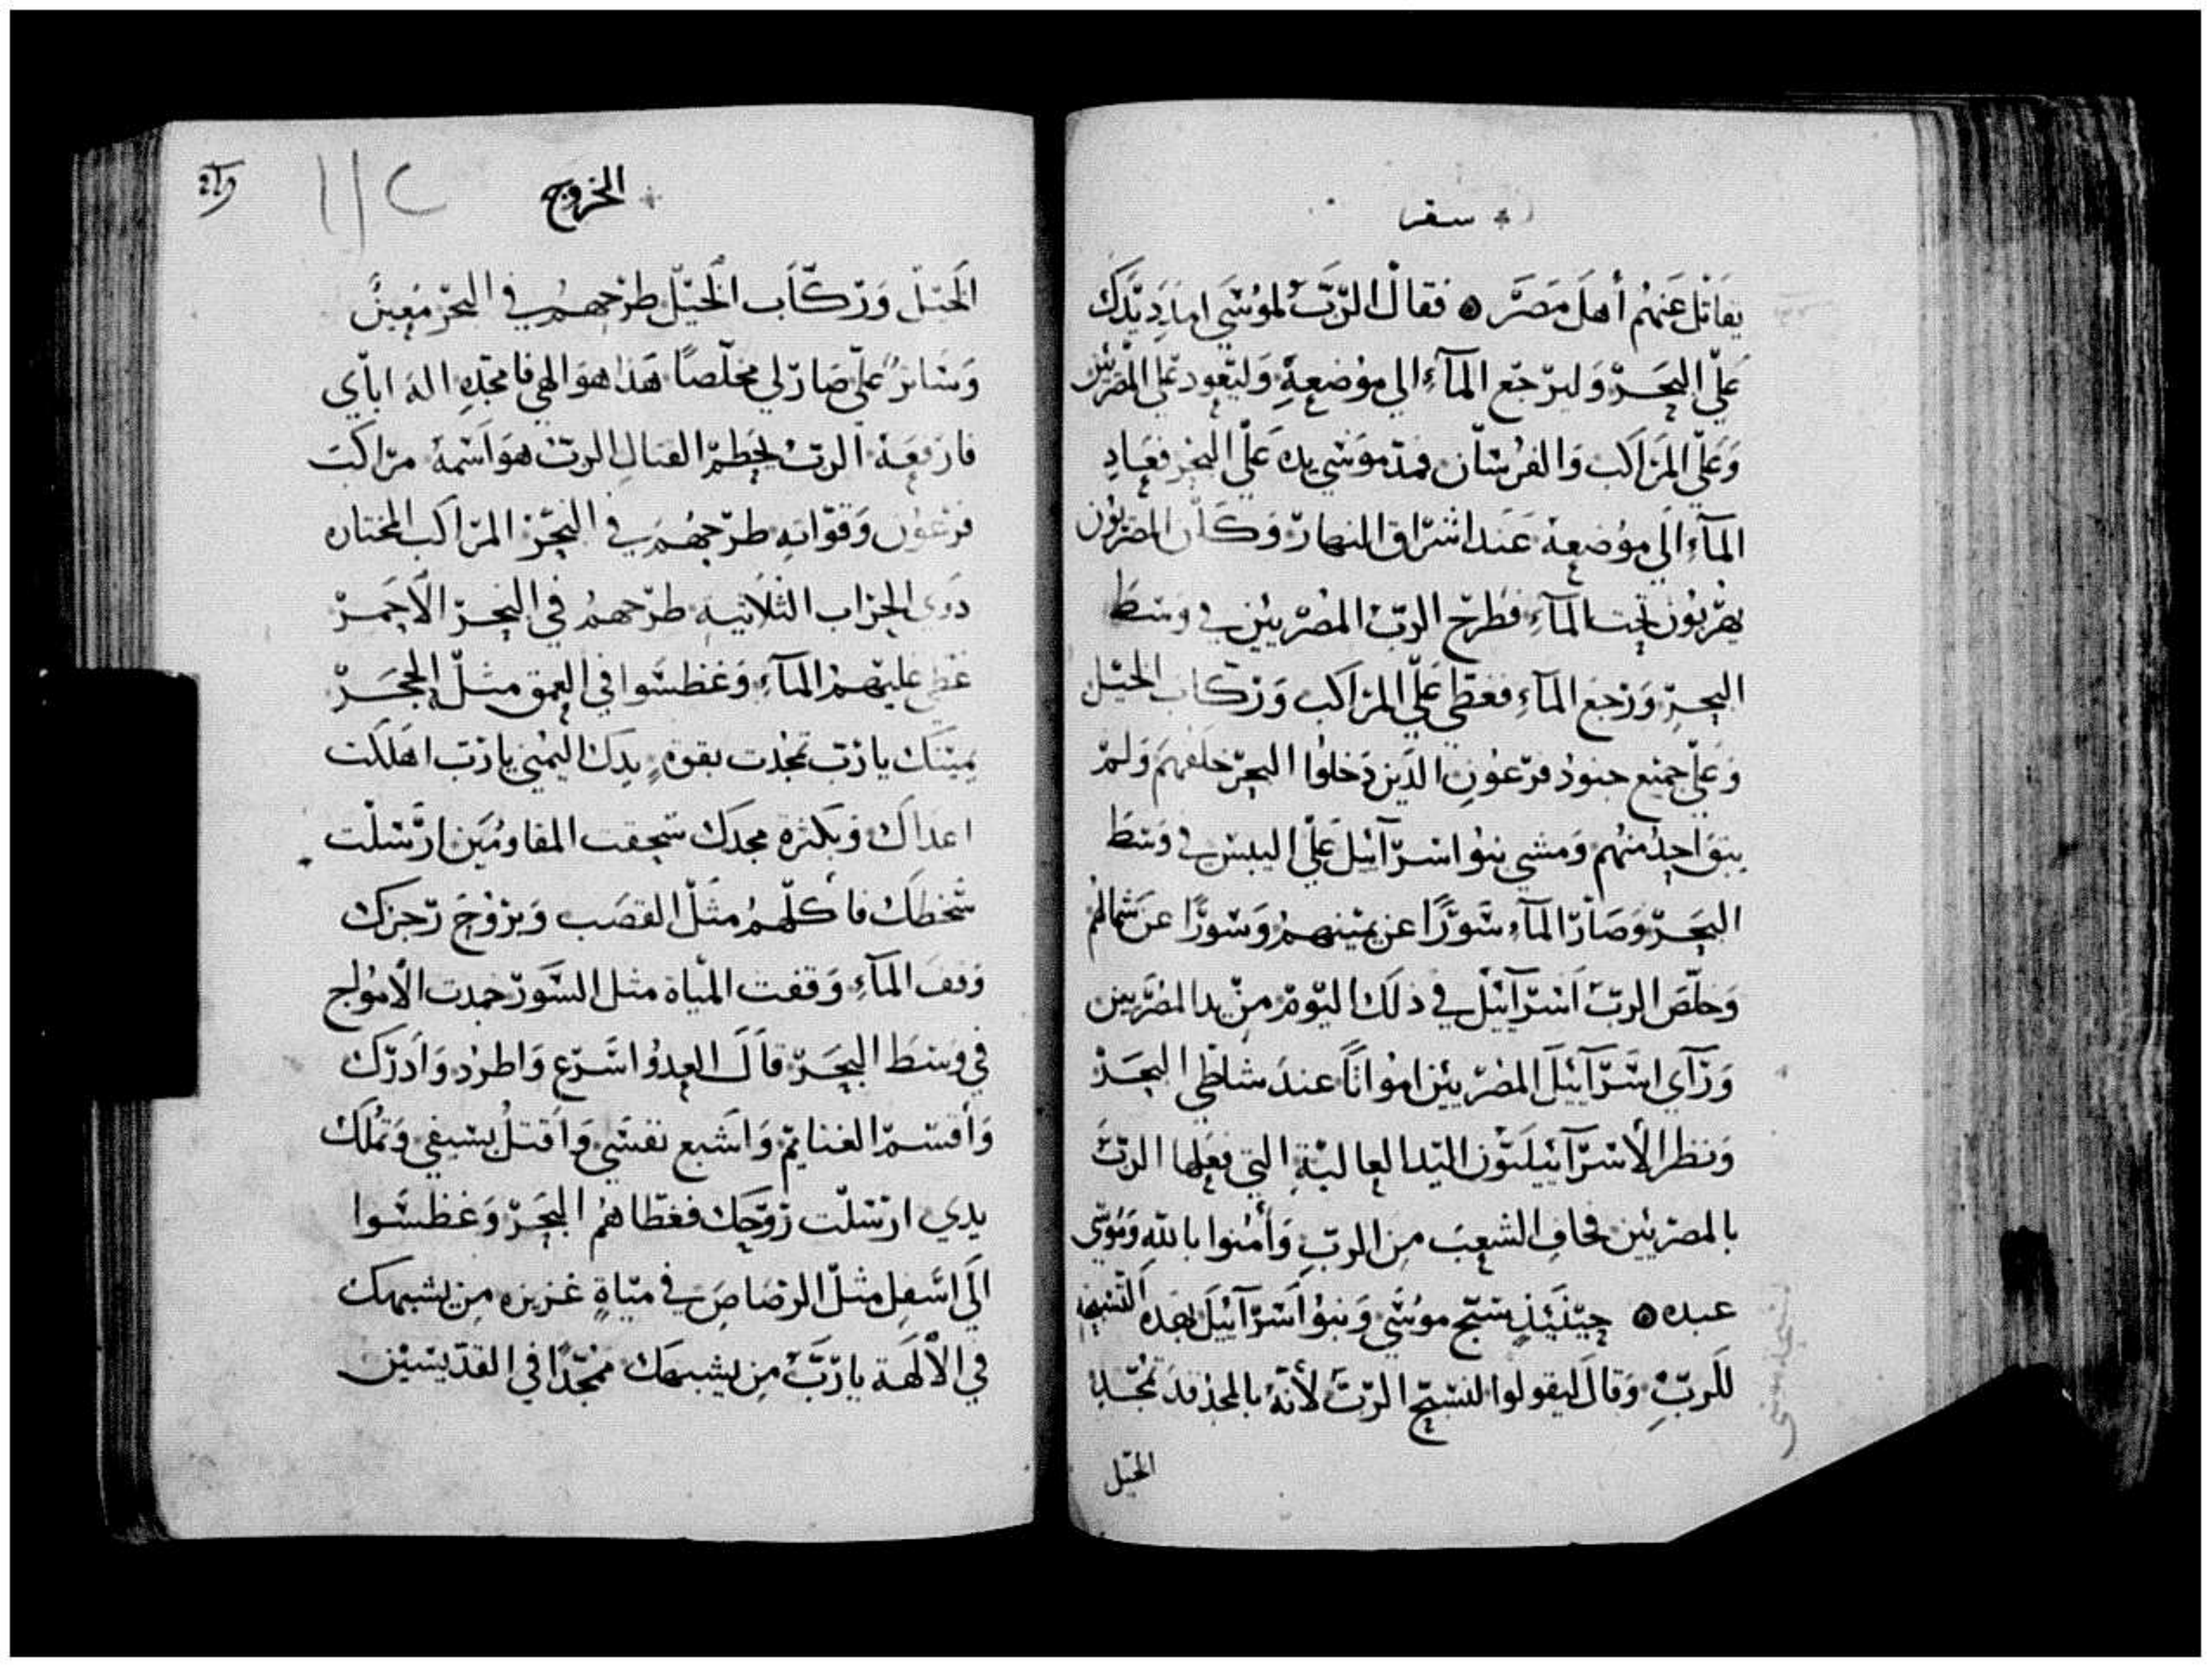 سفر
يقاتل عنهم أهل مصر ه فقال الرب لموسي امدد يدك
علي البحر وليرجع المآء الي موضعه وليعود علي المصريين
وعلي المراكب والفرسان فمد موسي يده علي البحر فعاد
المآء الي موضعه عند اشراق النهار وكان المصريون
يهربون تحت المآء فطرح الرب المصريين في وسط
البحر ورجع المآء فغطي علي المراكب وركاب الخيل
وعلي جميع جنود فرعون الذين دخلوا البحر خلفهم ولم
يبق احد منهم ومشي بنوا اسرآئيل علي اليبس في وسط
البحر وصار المآء سورًا عن يمينهم وسورًا عن شمالهم
وخلص الرب اسرآئيل في ذلك اليوم من يد المصريين
ورآي اسرآئيل المصريين امواتًا عند شاطي البحر
ونظر الأسرآئيليون اليد العالية التي فعلها الرب
بالمصريين فخاف الشعب من الرب وأمنوا بالله وموسي
عبده ه حينئذٍ سبح موسي وبنوا اسرآئيل بهذه التسبحه
للرب وقال ليقولوا لنسبح الرب لأنه بالمجد قد تمجد
الخيل
الخروج
الخيل وركاب الخيل طرحهم في البحر معين
وساتر علي صار لي مخلصًا هذا هو الهي فامجده اله ابآي
فارفعه الرب يحطم القتال الرب هو اسمه مراكب
فرعون وقواته طرحهم في البحر المراكب المختاره
ذوي الجزاب الثلاثيه طرحهم في البحر الأحمر
غطي عليهم المآء وغطسوا في العمق مثل الحجر
يمينك يارب تمجدت بقوه يدك اليمني يارب اهلكت
اعداك وبكثره مجدك سحقت المقاومين ارسلت
سخطك فأكلهم مثل القصب وبروح رجزك
وقف المآء وقفت المياه مثل السور جمدت الأمواج
في وسط البحر قال العدو اسرع واطرد وادرك
وأقسم الغنايم واشبع نفسي واقتل بسيفي وتملك
يدي ارسلت روحك فغطاهم البحر وغطسوا
الي اسفل مثل الرصاص في مياه غزيره من يشبهك
في الألهه يارب من يشبهك ممجدًا في القديسين